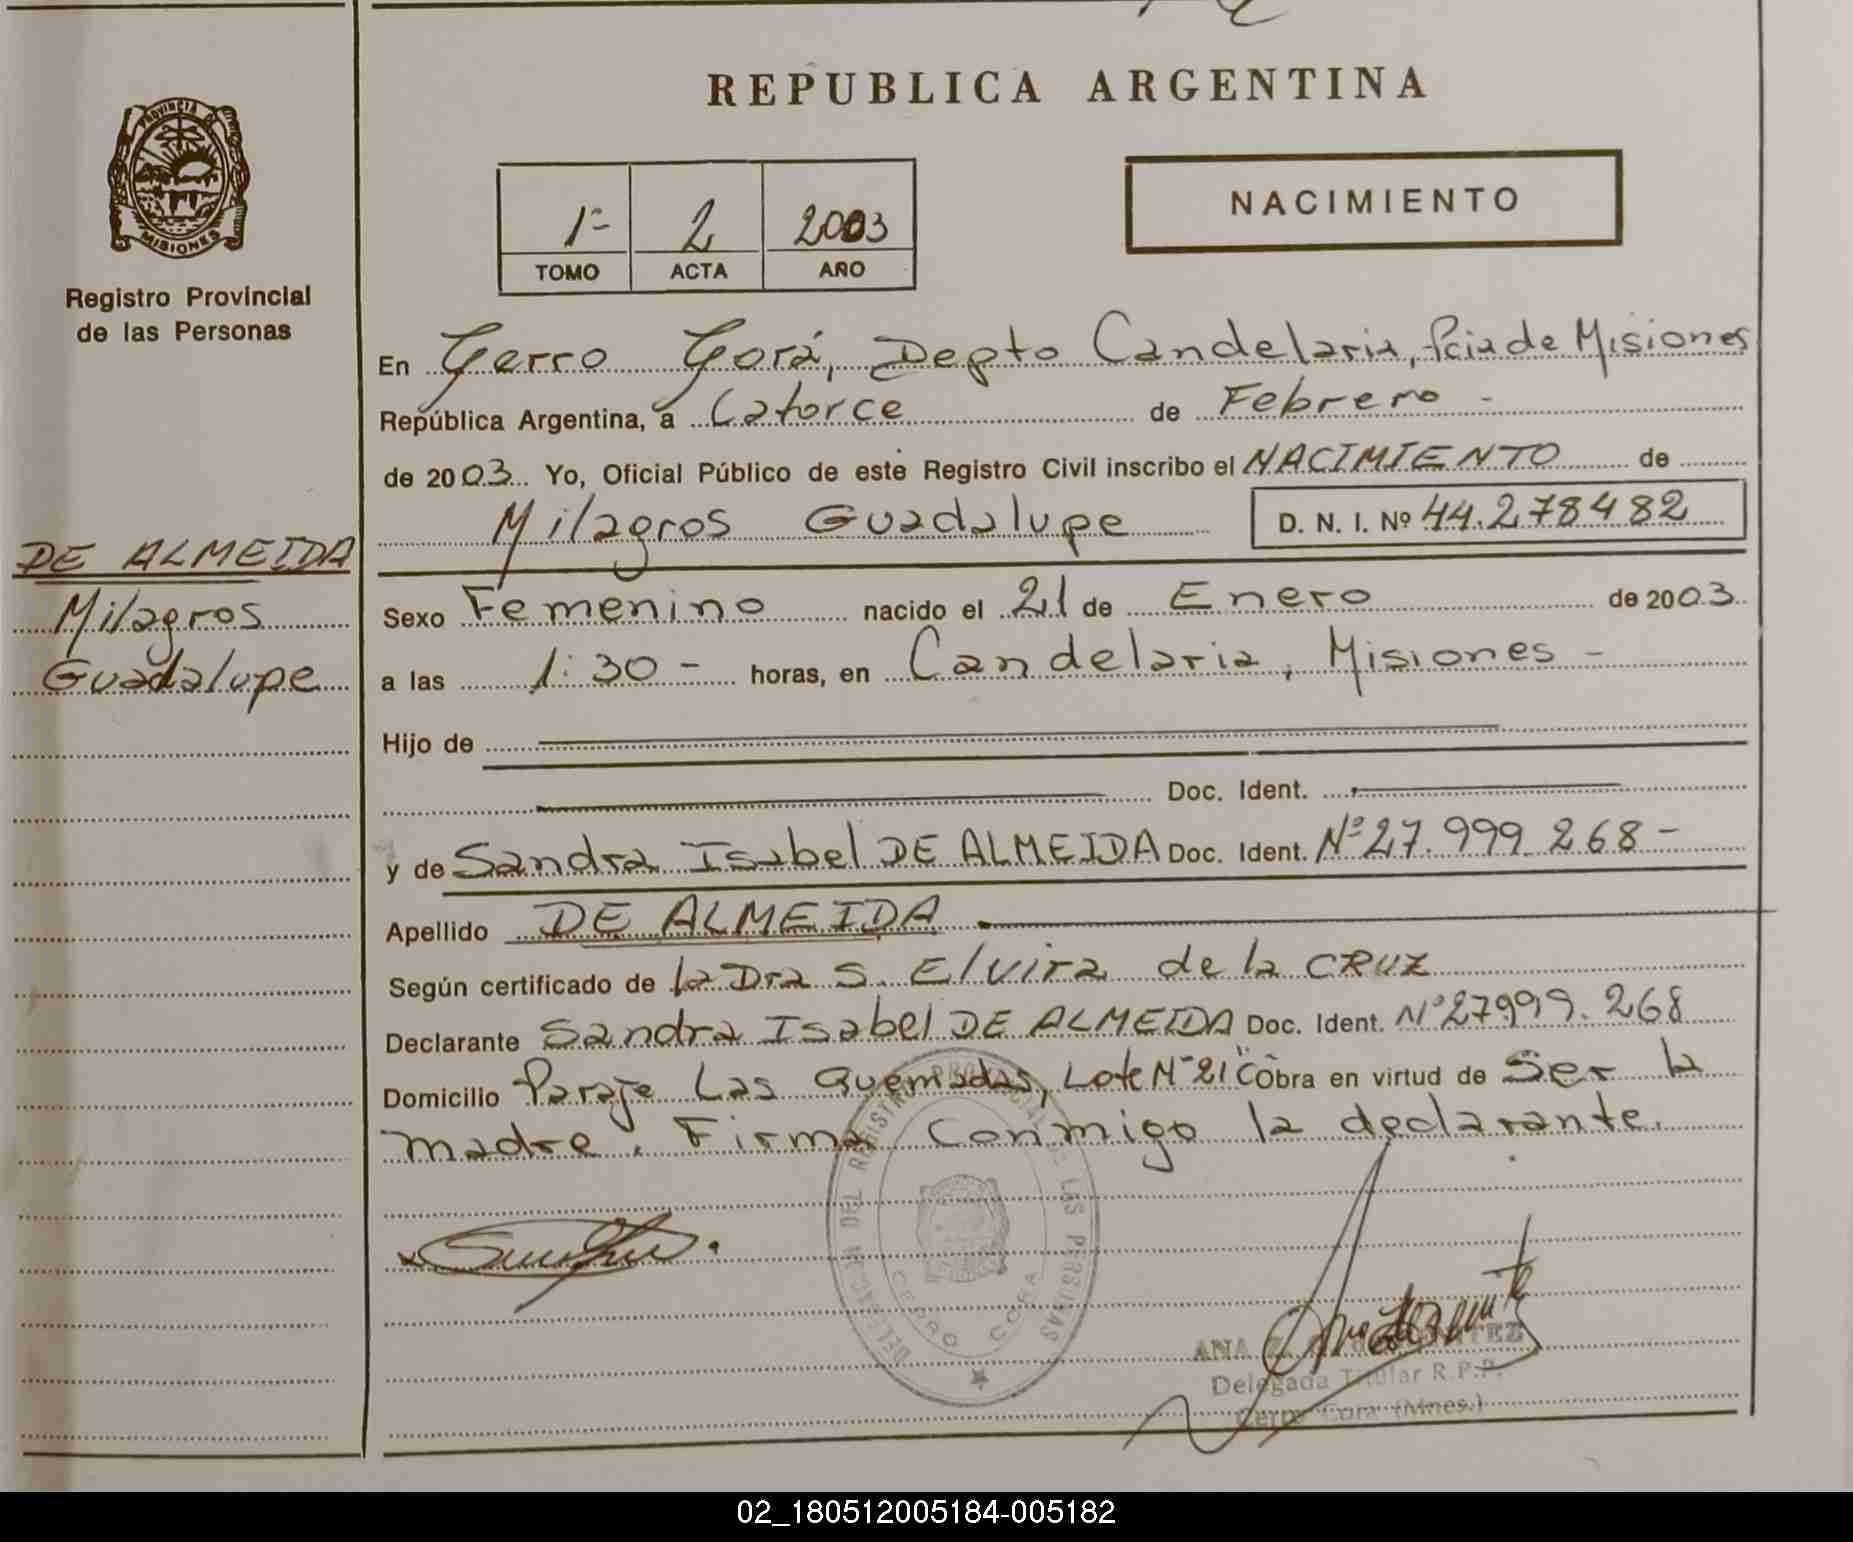 REPUBLICA ARGENTINA
PROVINCIA DE
MISIONES
Registro Provincial
de las Personas
1º 2 2003
TOMO ACTA AÑO
NACIMIENTO
En Cerro Corá, Depto Candelaria, Pcia de Misiones
República Argentina, a Catorce de Febrero -
de 2003. Yo, Oficial Público de este Registro Civil inscribo el NACIMIENTO de
Milagros Guadalupe D. N. I. Nº 44.278482
DE ALMEIDA
Milagros
Guadalupe
Sexo Femenino nacido el 21 de Enero de 2003
a las 1:30 - horas, en Candelaria, Misiones -
Hijo de
Doc. Ident.
y de Sandra Isabel DE ALMEIDA Doc. Ident. Nº 27.999.268 -
Apellido DE ALMEIDA
Según certificado de la Dra S. Elvira de la CRUZ
Declarante Sandra Isabel DE ALMEIDA Doc. Ident. Nº 27999.268
Domicilio Paraje Las Quemadas, Lote Nº 21 "C" Obra en virtud de Ser la
madre. Firma conmigo la declarante.
DELEGACION DEL REGISTRO PROVINCIAL DE LAS PERSONAS
CERRO CORA
ANA
Delegada Titular R.P.P.
Cerro Cora (Mnes.)
02_180512005184-005182